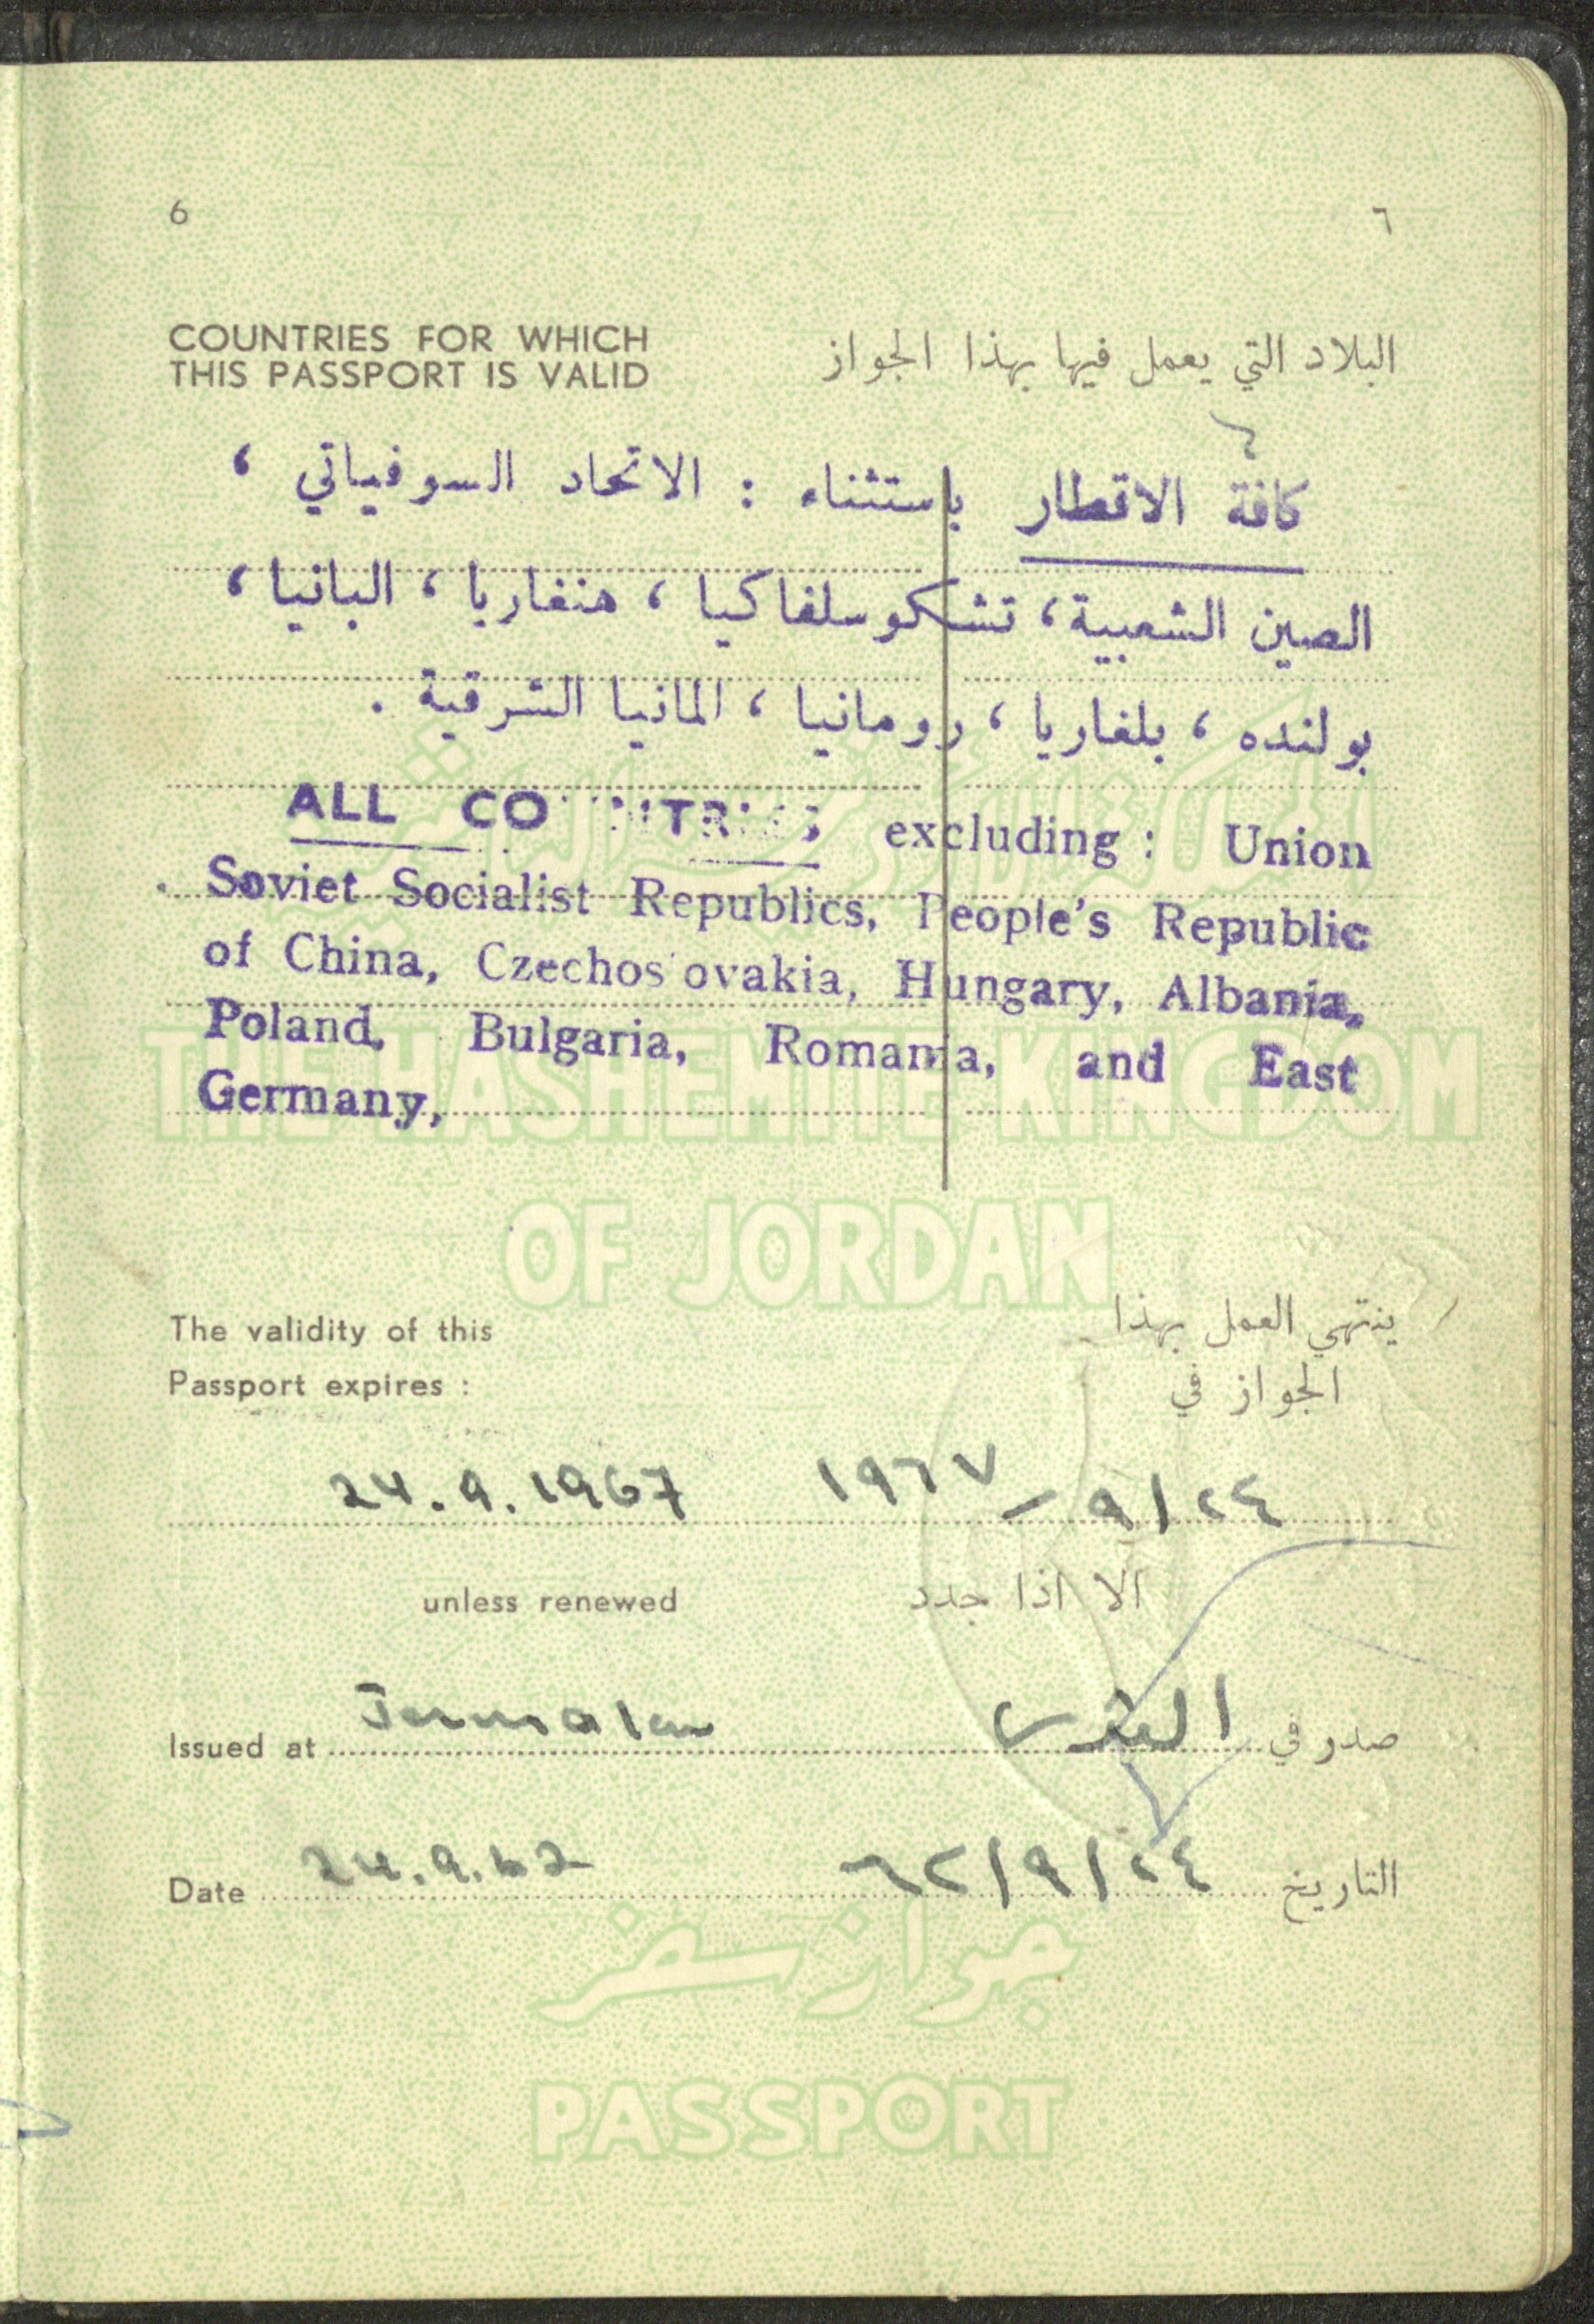 6 ٦
COUNTRIES FOR WHICH
THIS PASSPORT IS VALID
البلاد التي يعمل فيها بهذا الجواز
كافة الاقطار باستثناء : الاتحاد السوفياتي ،
الصين الشعبية ، تشكوسلفاكيا ، هنغاريا ، البانيا ،
بولنده ، بلغاريا ، رومانيا ، المانيا الشرقية .
ALL COUNTRIES excluding : Union
Soviet Socialist Republics, People's Republic
of China, Czechoslovakia, Hungary, Albania,
Poland, Bulgaria, Romania, and East
Germany,
THE HASHEMITE KINGDOM
OF JORDAN
The validity of this
Passport expires :
ينتهي العمل بهذا
الجواز في
24.9.1967 ٢٤/٩/١٩٦٧
unless renewed الا اذا جدد
Issued at Jerusalem صدر في القدس
Date 24.9.62 التاريخ ٢٤/٩/٦٢
جواز سفر
PASSPORT